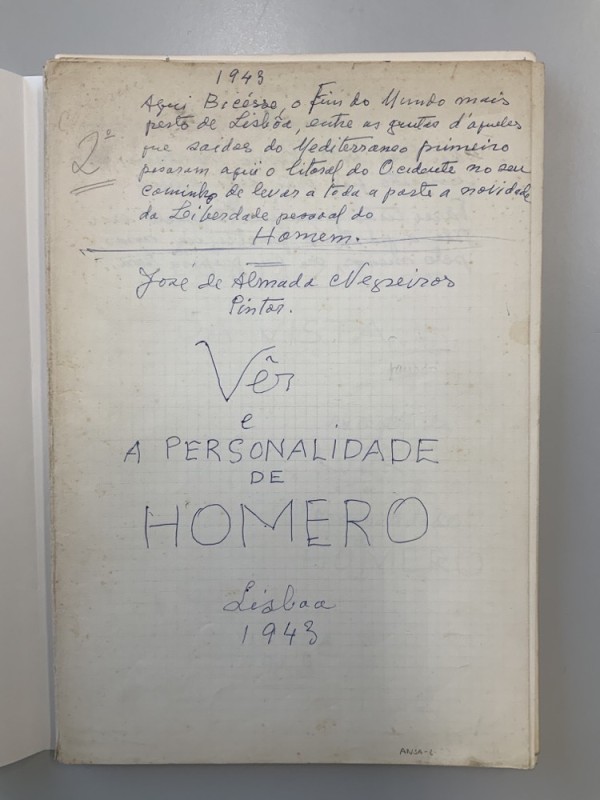 1943
Aqui Bicésse, o Fim do Mundo mais
perto de Lisbôa, entre as gentes d'aqueles
que saidos do Mediterraneo primeiro
pisaram aqui o litoral do Ocidente no seu
caminho de levar a toda a parte a novidade
da Liberdade pessoal do
Homem.
2º
José de Almada Negreiros
Pintor.
Vêr
e
A PERSONALIDADE
DE
HOMERO
Lisboa
1943
ANSA-L